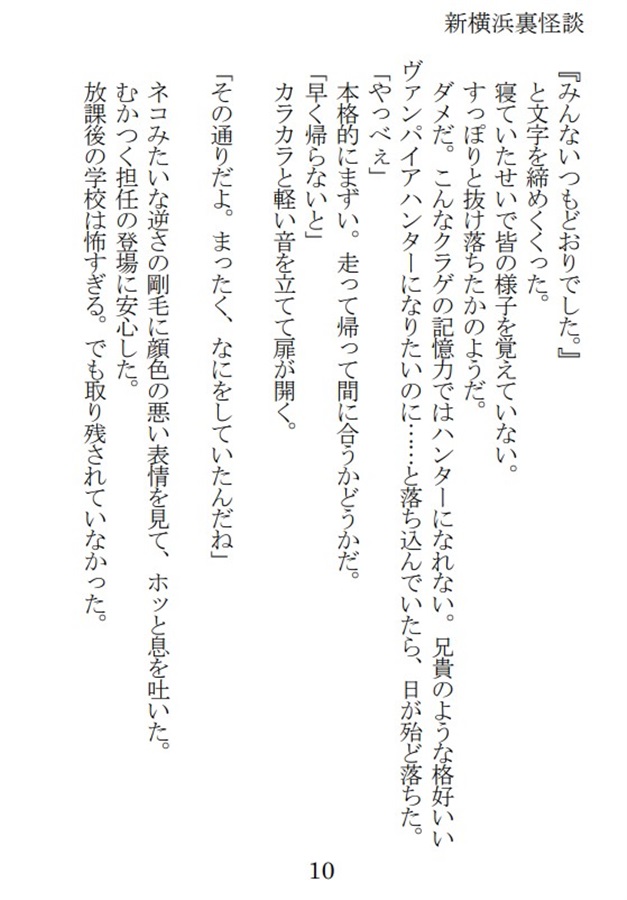 新横浜裏怪談
『みんないつもどおりでした。』
と文字を締めくくった。
寝ていたせいで皆の様子を覚えていない。
すっぽりと抜け落ちたかのようだ。
ダメだ。こんなクラゲの記憶力ではハンターになれない。兄貴のような格好いい
ヴァンパイアハンターになりたいのに……と落ち込んでいたら、日が殆ど落ちた。
「やっべぇ」
本格的にまずい。走って帰って間に合うかどうかだ。
「早く帰らないと」
カラカラと軽い音を立てて扉が開く。
「その通りだよ。まったく、なにをしていたんだね」
ネコみたいな逆さの剛毛に顔色の悪い表情を見て、ホッと息を吐いた。
むかつく担任の登場に安心した。
放課後の学校は怖すぎる。でも取り残されていなかった。
10